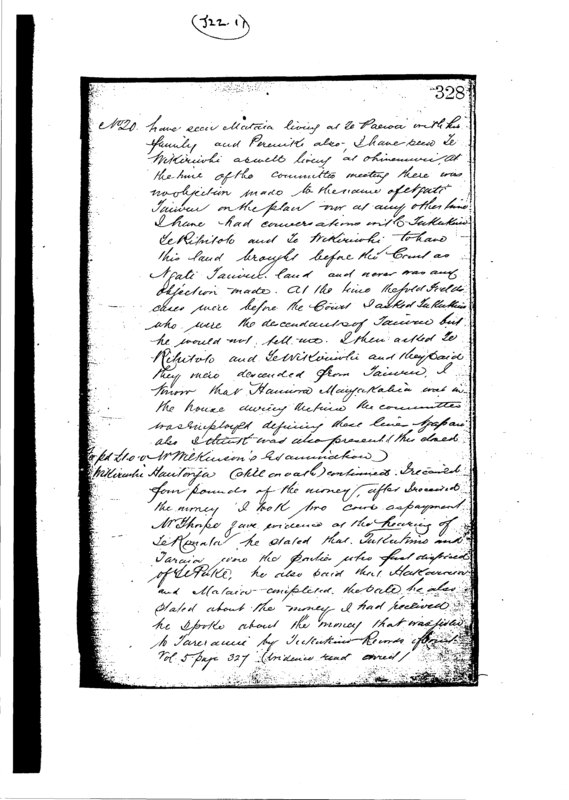 (J22.1)
328
No 20. have seen Mataia living at Te Paeroa with his
family and Pereniki also, I have seen Te
Wikiriwhi as well living at Ohinemuri, at
the time of the committee meeting there was
no objection made to the name of Ngati
Taiuru on the plan nor at any other time
I have had conversations with Tukukino
Te Rihitoto and Te Wikiriwhi to have
this land brought before this Court as
Ngati Taiuru land and never was any
objection made. At the time the Gold Fields
cases were before the Court I asked Tukukino
who were the descendants of Taiuru but
he would not tell me. I then asked Te
Rihitoto and Te Wikiriwhi and they said
they were descended from Taiuru, I
know that Haniora was in
the house during the time the committee
was employed defining these lines
also I think was also present (this closed
Mr Wilkinson's Examination)
Wikiriwhi Hautonga (still on oath) continued. I received
four pounds of the money, after I received
the money I took two cows as payment
Mr Thorpe gave evidence at the hearing of
he stated that Tukukino and
Taraia were the parties who first disposed
of Te Puke, he also said that
and Mataia completed the sale, he also
stated about the money I had received
he spoke about the money that was given
to by Tukukino Records of Court
Vol 5 page 327 (evidence read)